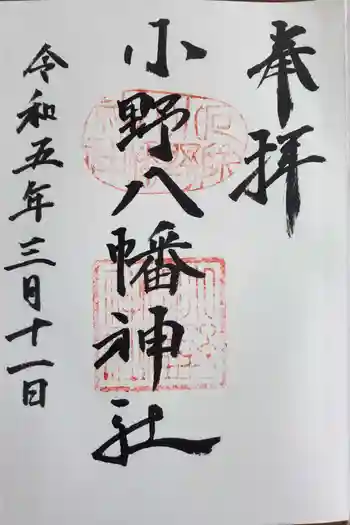 奉拝
小野八幡神社
令和五年三月十一日